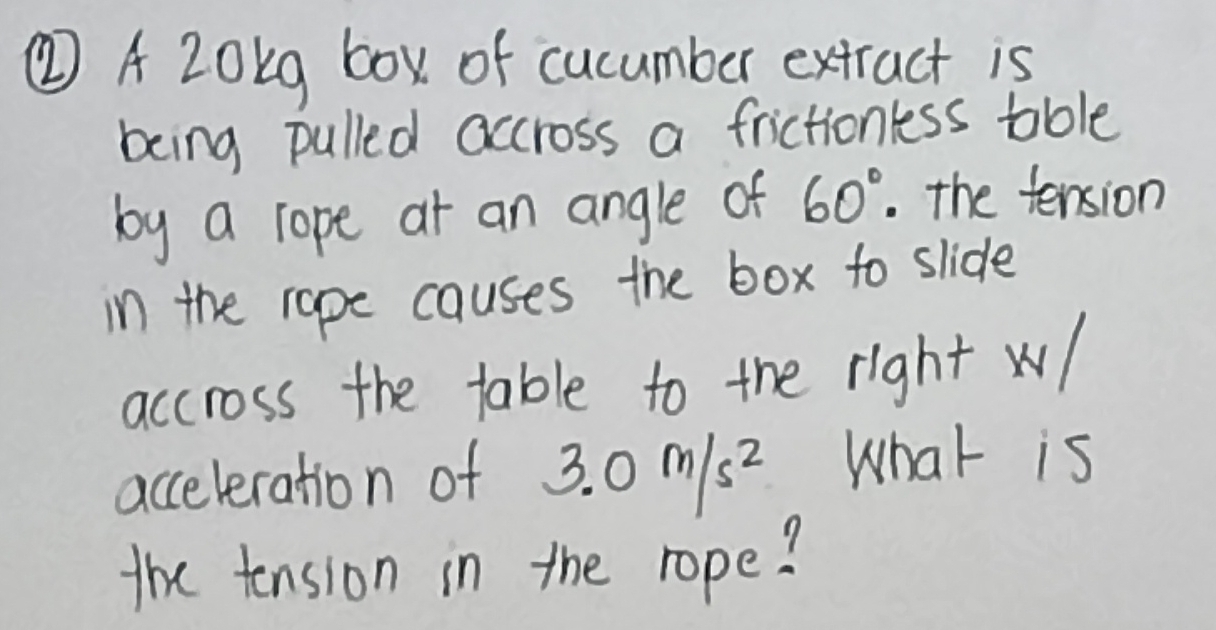 ② A 20kg box of cucumber extract is
being pulled accross a frictionless table
by a rope at an angle of 60°. The tension
in the rope causes the box to slide
accross the table to the right w/
acceleration of 3.0 m/s² What is
the tension in the rope?